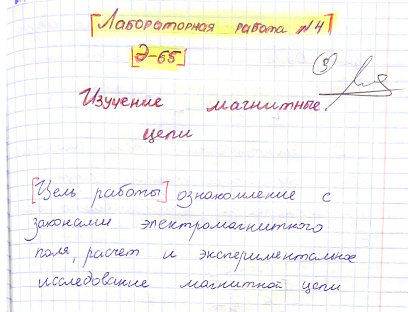 Лабораторная работа №4
Э-65
Изучение магнитные
цепи
Цель работы ознакомление с
законами электромагнитного
поля, расчет и экспериментальное
исследование магнитной цепи